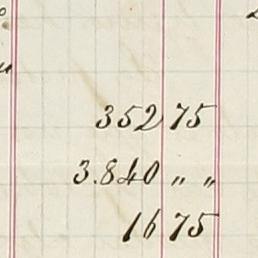 352 75
3.840 " "
16 75